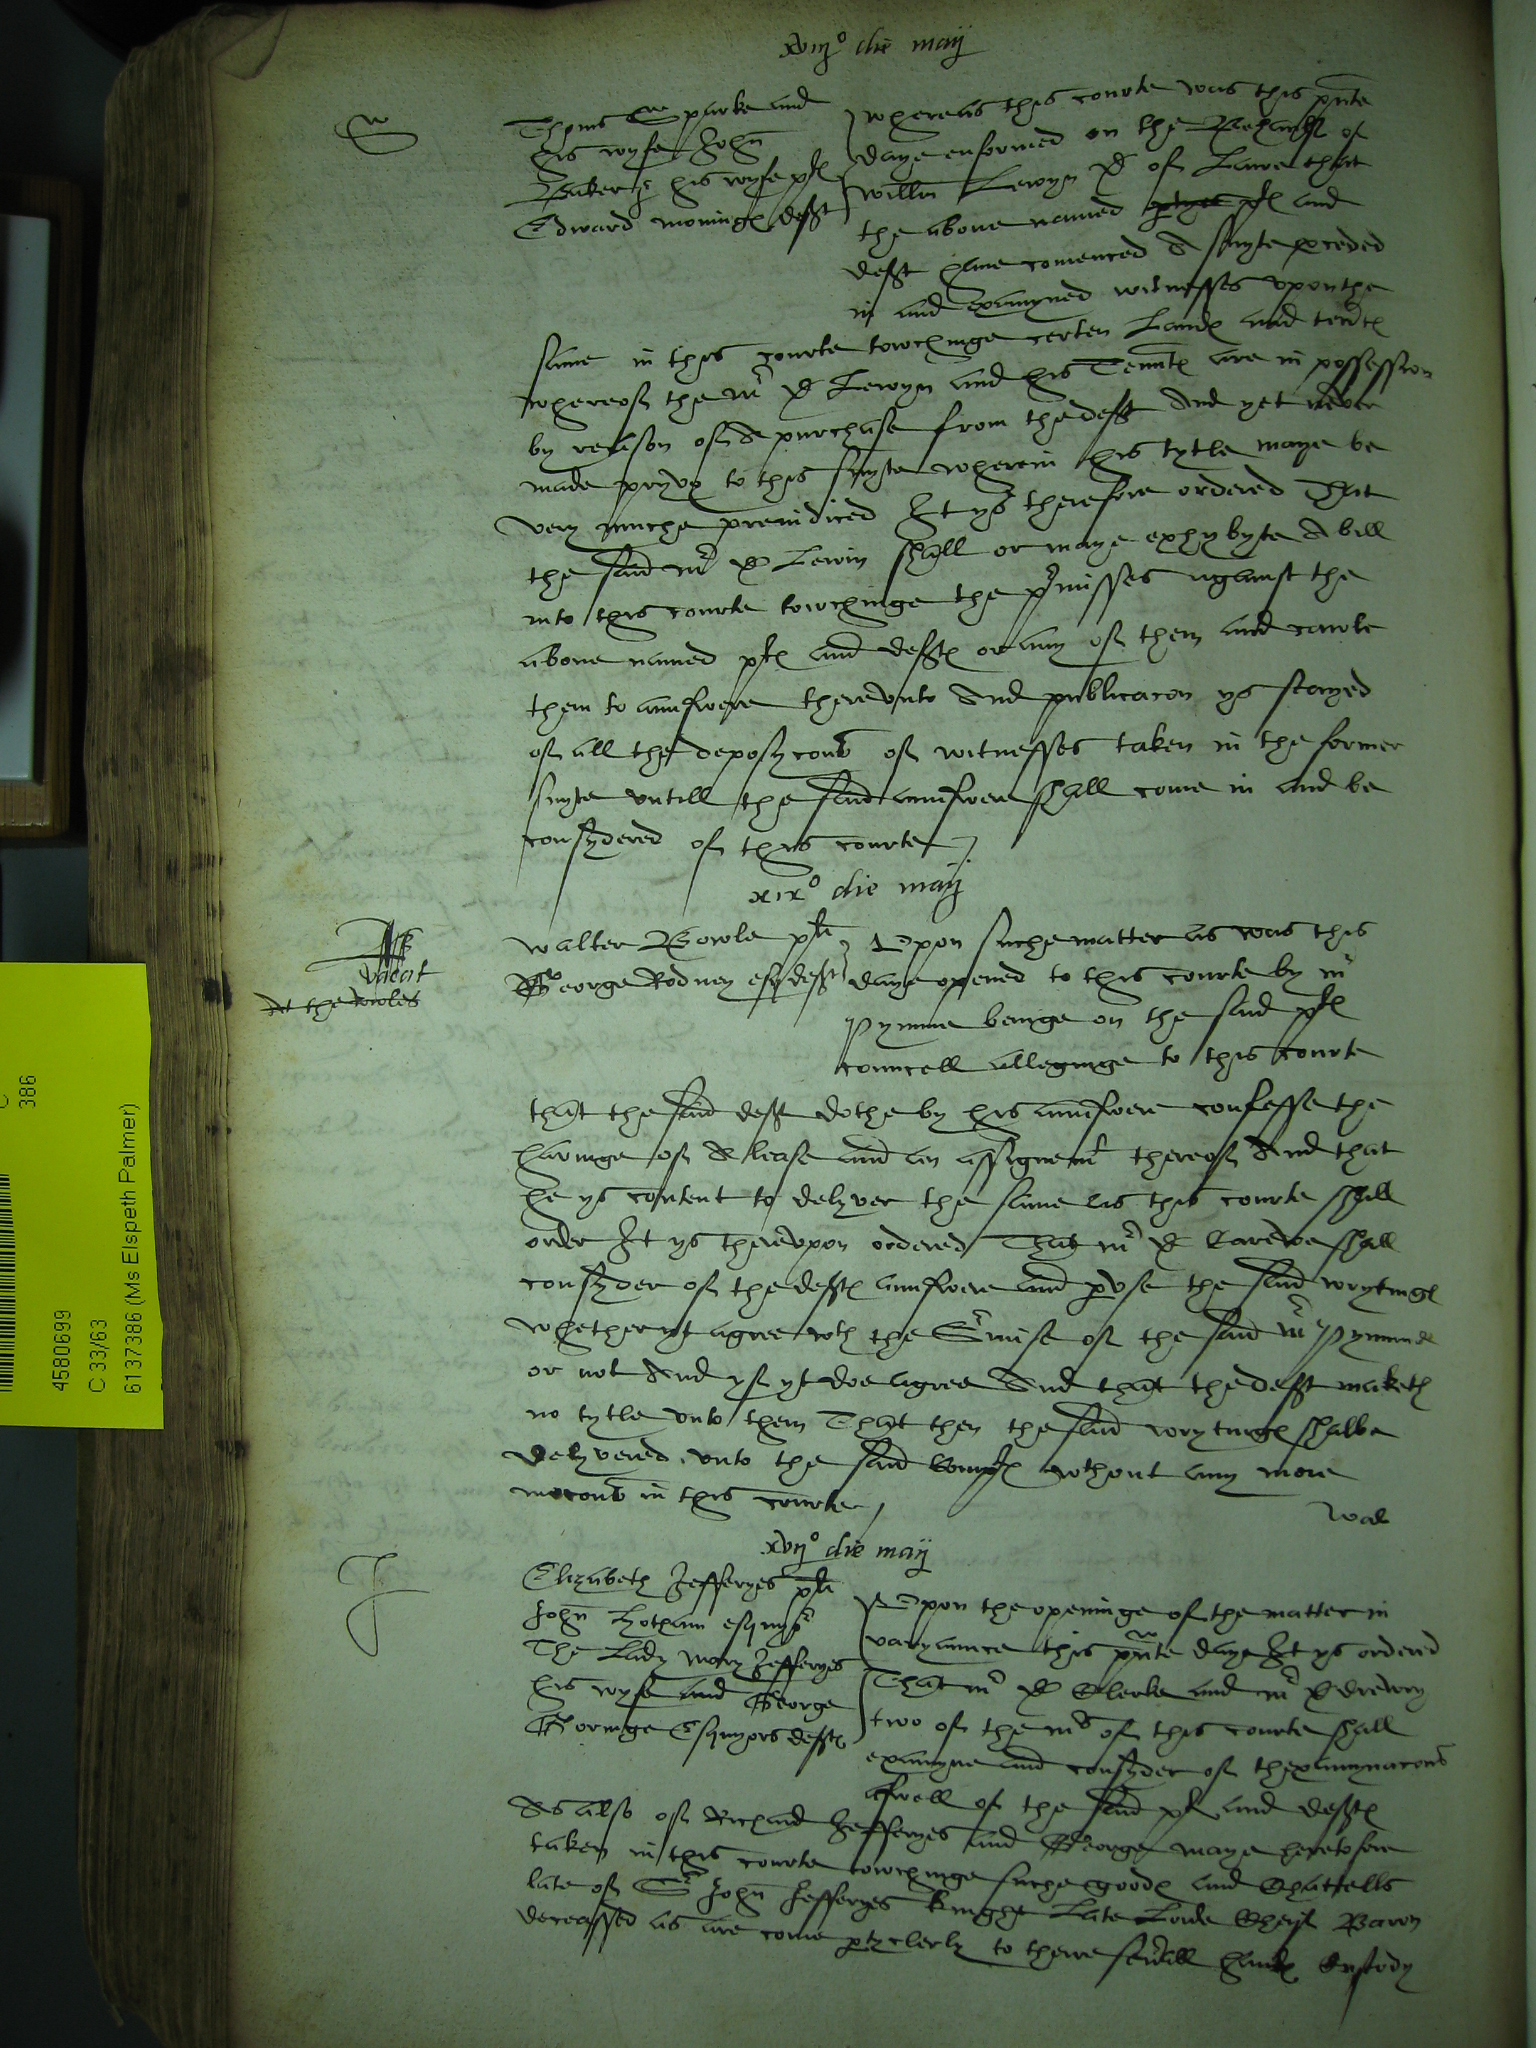 xviijº die maij
Thoms Sparke and
his wyfe John
Baker & his wyfe pl
Edward moninges deft
whereas this courte was this pnte
daye enformed on the Behalf of
willm Lewyn D of Lawe that
the above named pl and
deft have comenced A suyte proceded
in and examyned witnesses vpon the
same in this courte towchinge certen Landes and tentes
whereof the mr D Lewyn and his Tenntes are in possession
by reason of A purchase from the deft And yet never
made pryvy to this suyte wherein his tytle maye be
very muche preiudiced It ys therefore ordered That
the said mr D Lewin shall or maye exhybyte A bill
into this courte towchinge the pmisses against the
above named pl and deftes or any of them and cawse
them to aunswere therevnto And publicacon ys stayed
of all the deposycons of witnesses taken in the former
suyte vntill the said aunswere shall come in and be
consydered of this courte
xixº die maij
vacat
At the Rowles
walter Bowle pl
George Rodney esq deft
Vpon suche matter as was this
daye opened to this courte by mr
Pymme beinge on the said pl
councell alleginge to this courte
that the said deft dothe by his aunswere confesse the
havinge of A lease and an assignemt thereof And that
he ys content to delyver the same as this courte shall
order It ys therevpon ordered That mr D Carewe shall
consyder of the deftes aunswere and pvse the said wrytinges
whether yt agree wth the Surmise of the said mr Pymme
or not And yf yt doe agree And that the deft maketh
no tytle vnto them That then the said wrytinges shalbe
delyvered vnto the said Compl without any more
mocons in this courte
wal
xvijº die maij
J
Elizabeth Jefferyes pl
John Hotham esquyer
The Lady Mary Jefferyes
his wyfe and George
Goringe Esquyors deftes
Vpon the openinge of the matter in
varyaunce this pnte daye It ys ordered
That mr D Clerke and mr D drewry
two of the mrs of this courte shall
examyne and consyder of thexamynacons
aswell of the said pl and deftes
As also of Richard Jefferyes and George maye heretofore
taken in this courte towchinge suche goodes and Chattells
late of Sr John Jefferyes knighte Late Lorde Cheif Baron
deceassed as are come ptyclerly to there severall handes Custody
4580699
C 33/63
6137386 (Ms Elspeth Palmer)
C
386